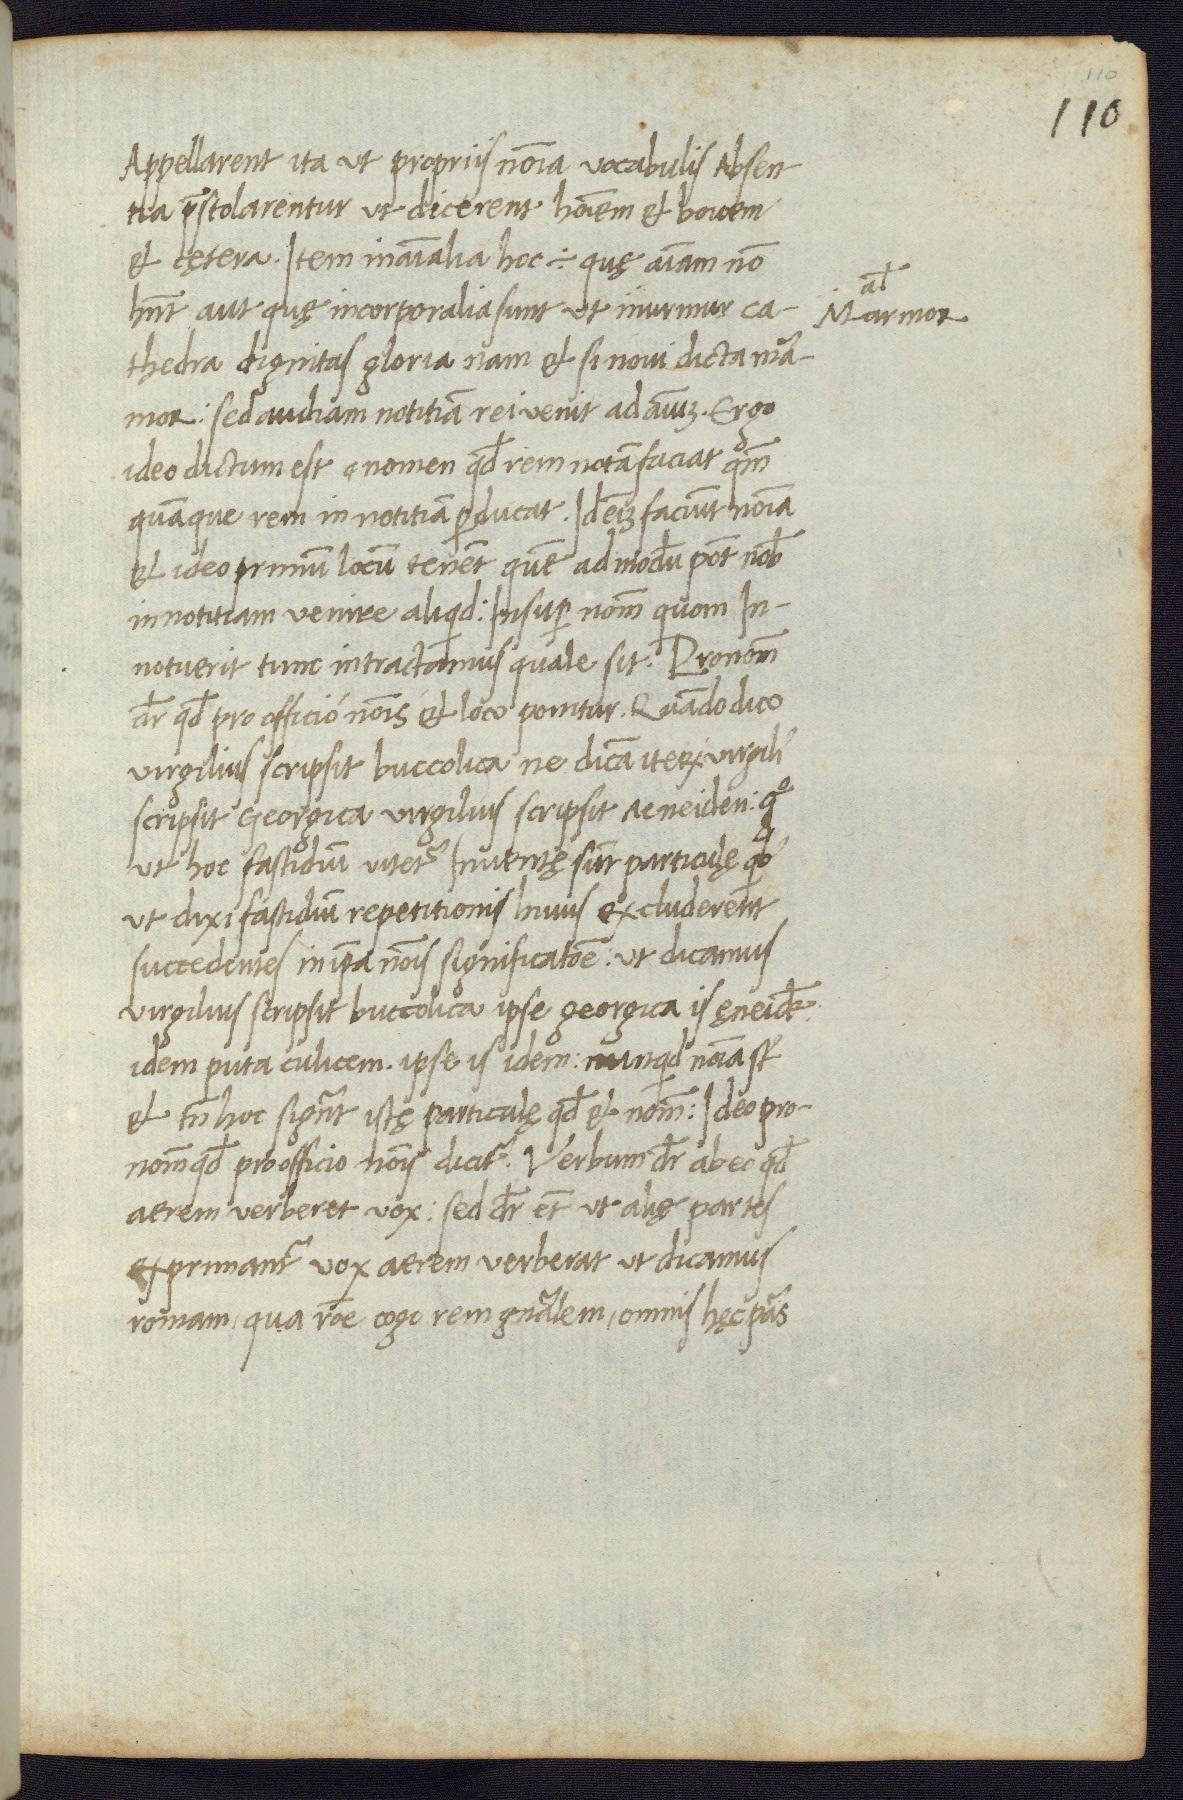 110
110
Appellarent ita ut propriis nõia vocabulis Absen
tia p̃stolarentur ut dicerent hoı̃em & bovem
& cętera. Item inaĩalia hoc ÷ quę aĩam nõ
hñt aut quę incorporalia sunt ut murmur ca-
al̃
Marmor
thedra dignitas gloria nam & si novi dicta mã-
mor: sed audiam notitiã rei venit ad aĩuꝫ. Ergo
ideo dictum est nomen qđ rem notã faciat qm̃
quãque rem in notitiã ꝑducat. Id eiꝫ faciũt nõia
& ideo primũ locũ tenẽt quẽ ad modũ põt nob̃
in notitiam venire aliqd: Insuꝑ nom̃ quom In-
notuerit tunc intractamus quale sit. Pronom̃
dr̃ qđ pro officio nõis & loco ponitur. Quãdo dico
virgilius scripsit buccolica ne dicã iteꝝ virgili'
scripsit Georgica virgilius scripsit Aeneiden: qº
ut hoc fastidiũ vitet' Inventę sũt particulę qb'
ut dixi fastidiũ repetitionis huius excluderent'
succedentes in ip̃a nõis significatõe: ut dicamus
virgilius scripsit buccolica ipse georgica is ęneidẽ
idem puta culicem. ipse is idem: nunqđ nõia st̃
& tñ hoc signãt istę particulę qđ & nom̃: Ideo pro-
nom̃ qđ pro officio nõis dicit'. Verbum dr̃ ab eo qđ
aerem verberet vox: sed dr̃ et̃ ut alię partes
exprimant' vox aerem verberat ut dicamus
romam, qua rõe cogo rem gñalem, omnis hęc pãs